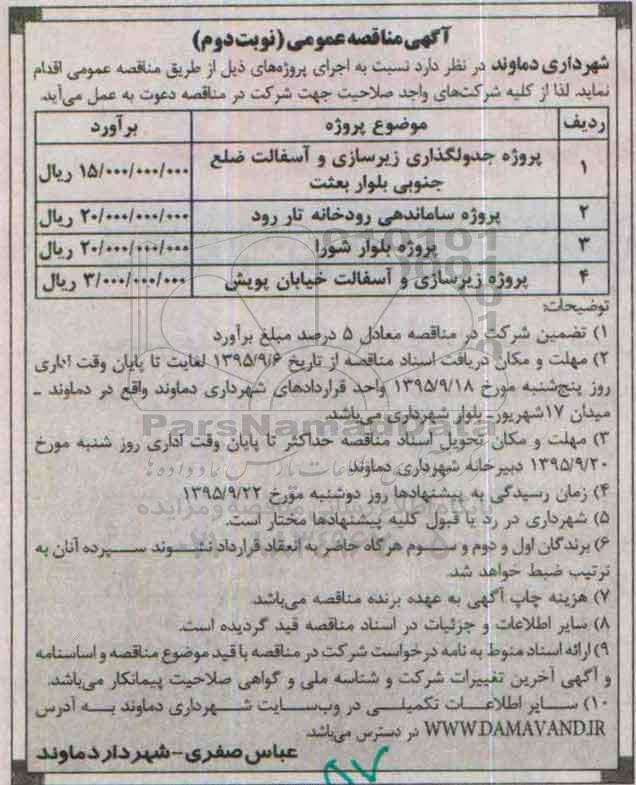 آگهی مناقصه عمومی (نوبت دوم)
شهرداری دماوند در نظر دارد نسبت به اجرای پروژه‌های ذیل از طریق مناقصه عمومی اقدام
نماید. لذا از کلیه شرکت‌های واجد صلاحیت جهت شرکت در مناقصه دعوت به عمل می‌آید.
ردیف موضوع پروژه برآورد
۱ پروژه جدولگذاری زیرسازی و آسفالت ضلع جنوبی بلوار بعثت ۱۵/۰۰۰/۰۰۰/۰۰۰ ریال
۲ پروژه ساماندهی رودخانه تار رود ۲۰/۰۰۰/۰۰۰/۰۰۰ ریال
۳ پروژه بلوار شورا ۲۰/۰۰۰/۰۰۰/۰۰۰ ریال
۴ پروژه زیرسازی و آسفالت خیابان پویش ۳/۰۰۰/۰۰۰/۰۰۰ ریال
توضیحات:
۱) تضمین شرکت در مناقصه معادل ۵ درصد مبلغ برآورد
۲) مهلت و مکان دریافت اسناد مناقصه از تاریخ ۱۳۹۵/۹/۶ لغایت تا پایان وقت اداری
روز پنج‌شنبه مورخ ۱۳۹۵/۹/۱۸ واحد قراردادهای شهرداری دماوند واقع در دماوند ـ
میدان ۱۷شهریور- بلوار شهرداری می‌باشد.
۳) مهلت و مکان تحویل اسناد مناقصه حداکثر تا پایان وقت اداری روز شنبه مورخ
۱۳۹۵/۹/۲۰ دبیرخانه شهرداری دماوند
۴) زمان رسیدگی به پیشنهادها روز دوشنبه مورخ ۱۳۹۵/۹/۲۲
۵) شهرداری در رد یا قبول کلیه پیشنهادها مختار است.
۶) برندگان اول و دوم و سوم هرگاه حاضر به انعقاد قرارداد نشوند سپرده آنان به
ترتیب ضبط خواهد شد.
۷) هزینه چاپ آگهی به عهده برنده مناقصه می‌باشد.
۸) سایر اطلاعات و جزئیات در اسناد مناقصه قید گردیده است.
۹) ارائه اسناد منوط به نامه درخواست شرکت در مناقصه با قید موضوع مناقصه و اساسنامه
و آگهی آخرین تغییرات شرکت و شناسه ملی و گواهی صلاحیت پیمانکار می‌باشد.
۱۰) سایر اطلاعات تکمیلی در وب‌سایت شهرداری دماوند به آدرس
WWW.DAMAVAND.IR در دسترس می‌باشد.
عباس صفری-شهردار دماوند
ParsNamadData